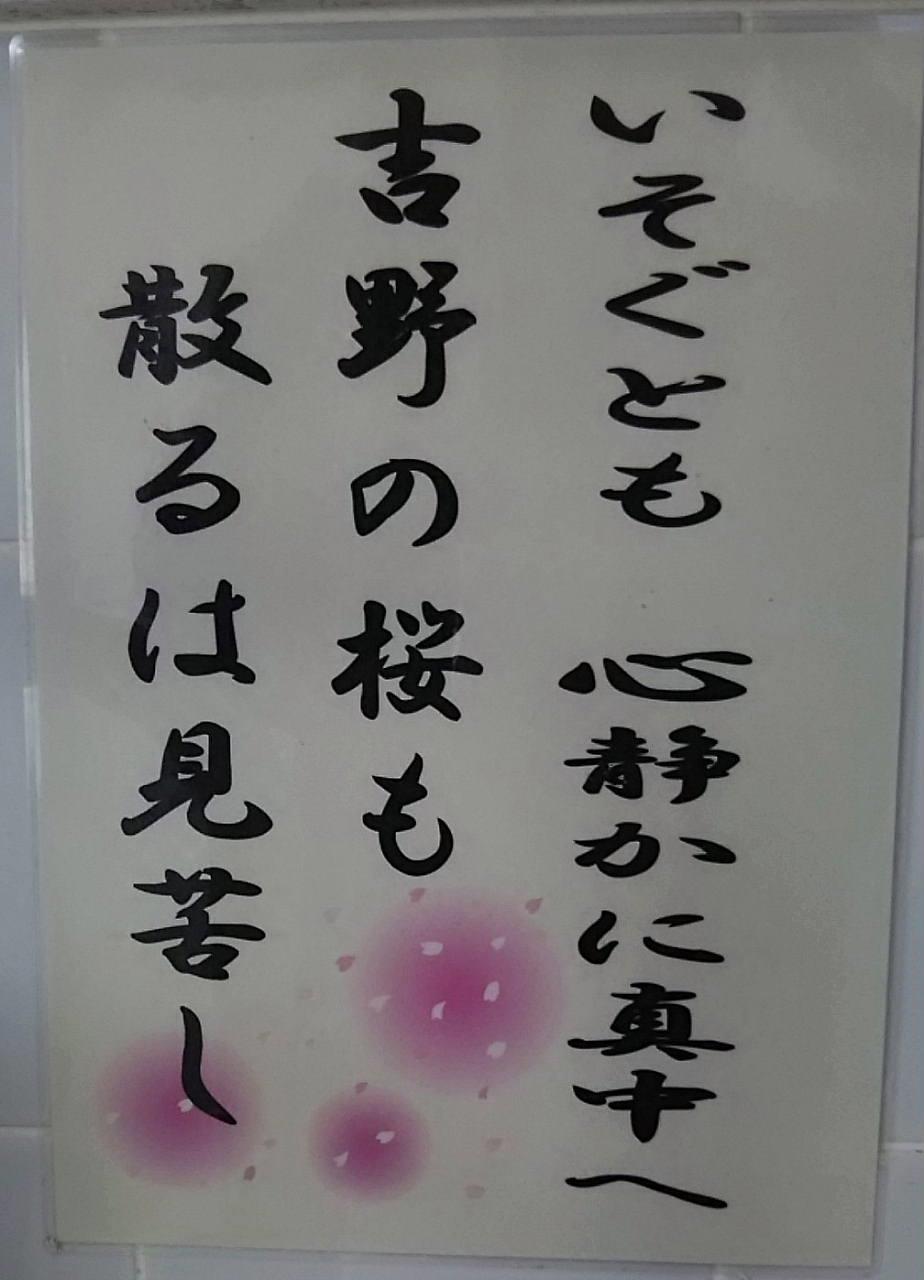 いそぐとも　心静かに真中へ
吉野の桜も
散るは見苦し